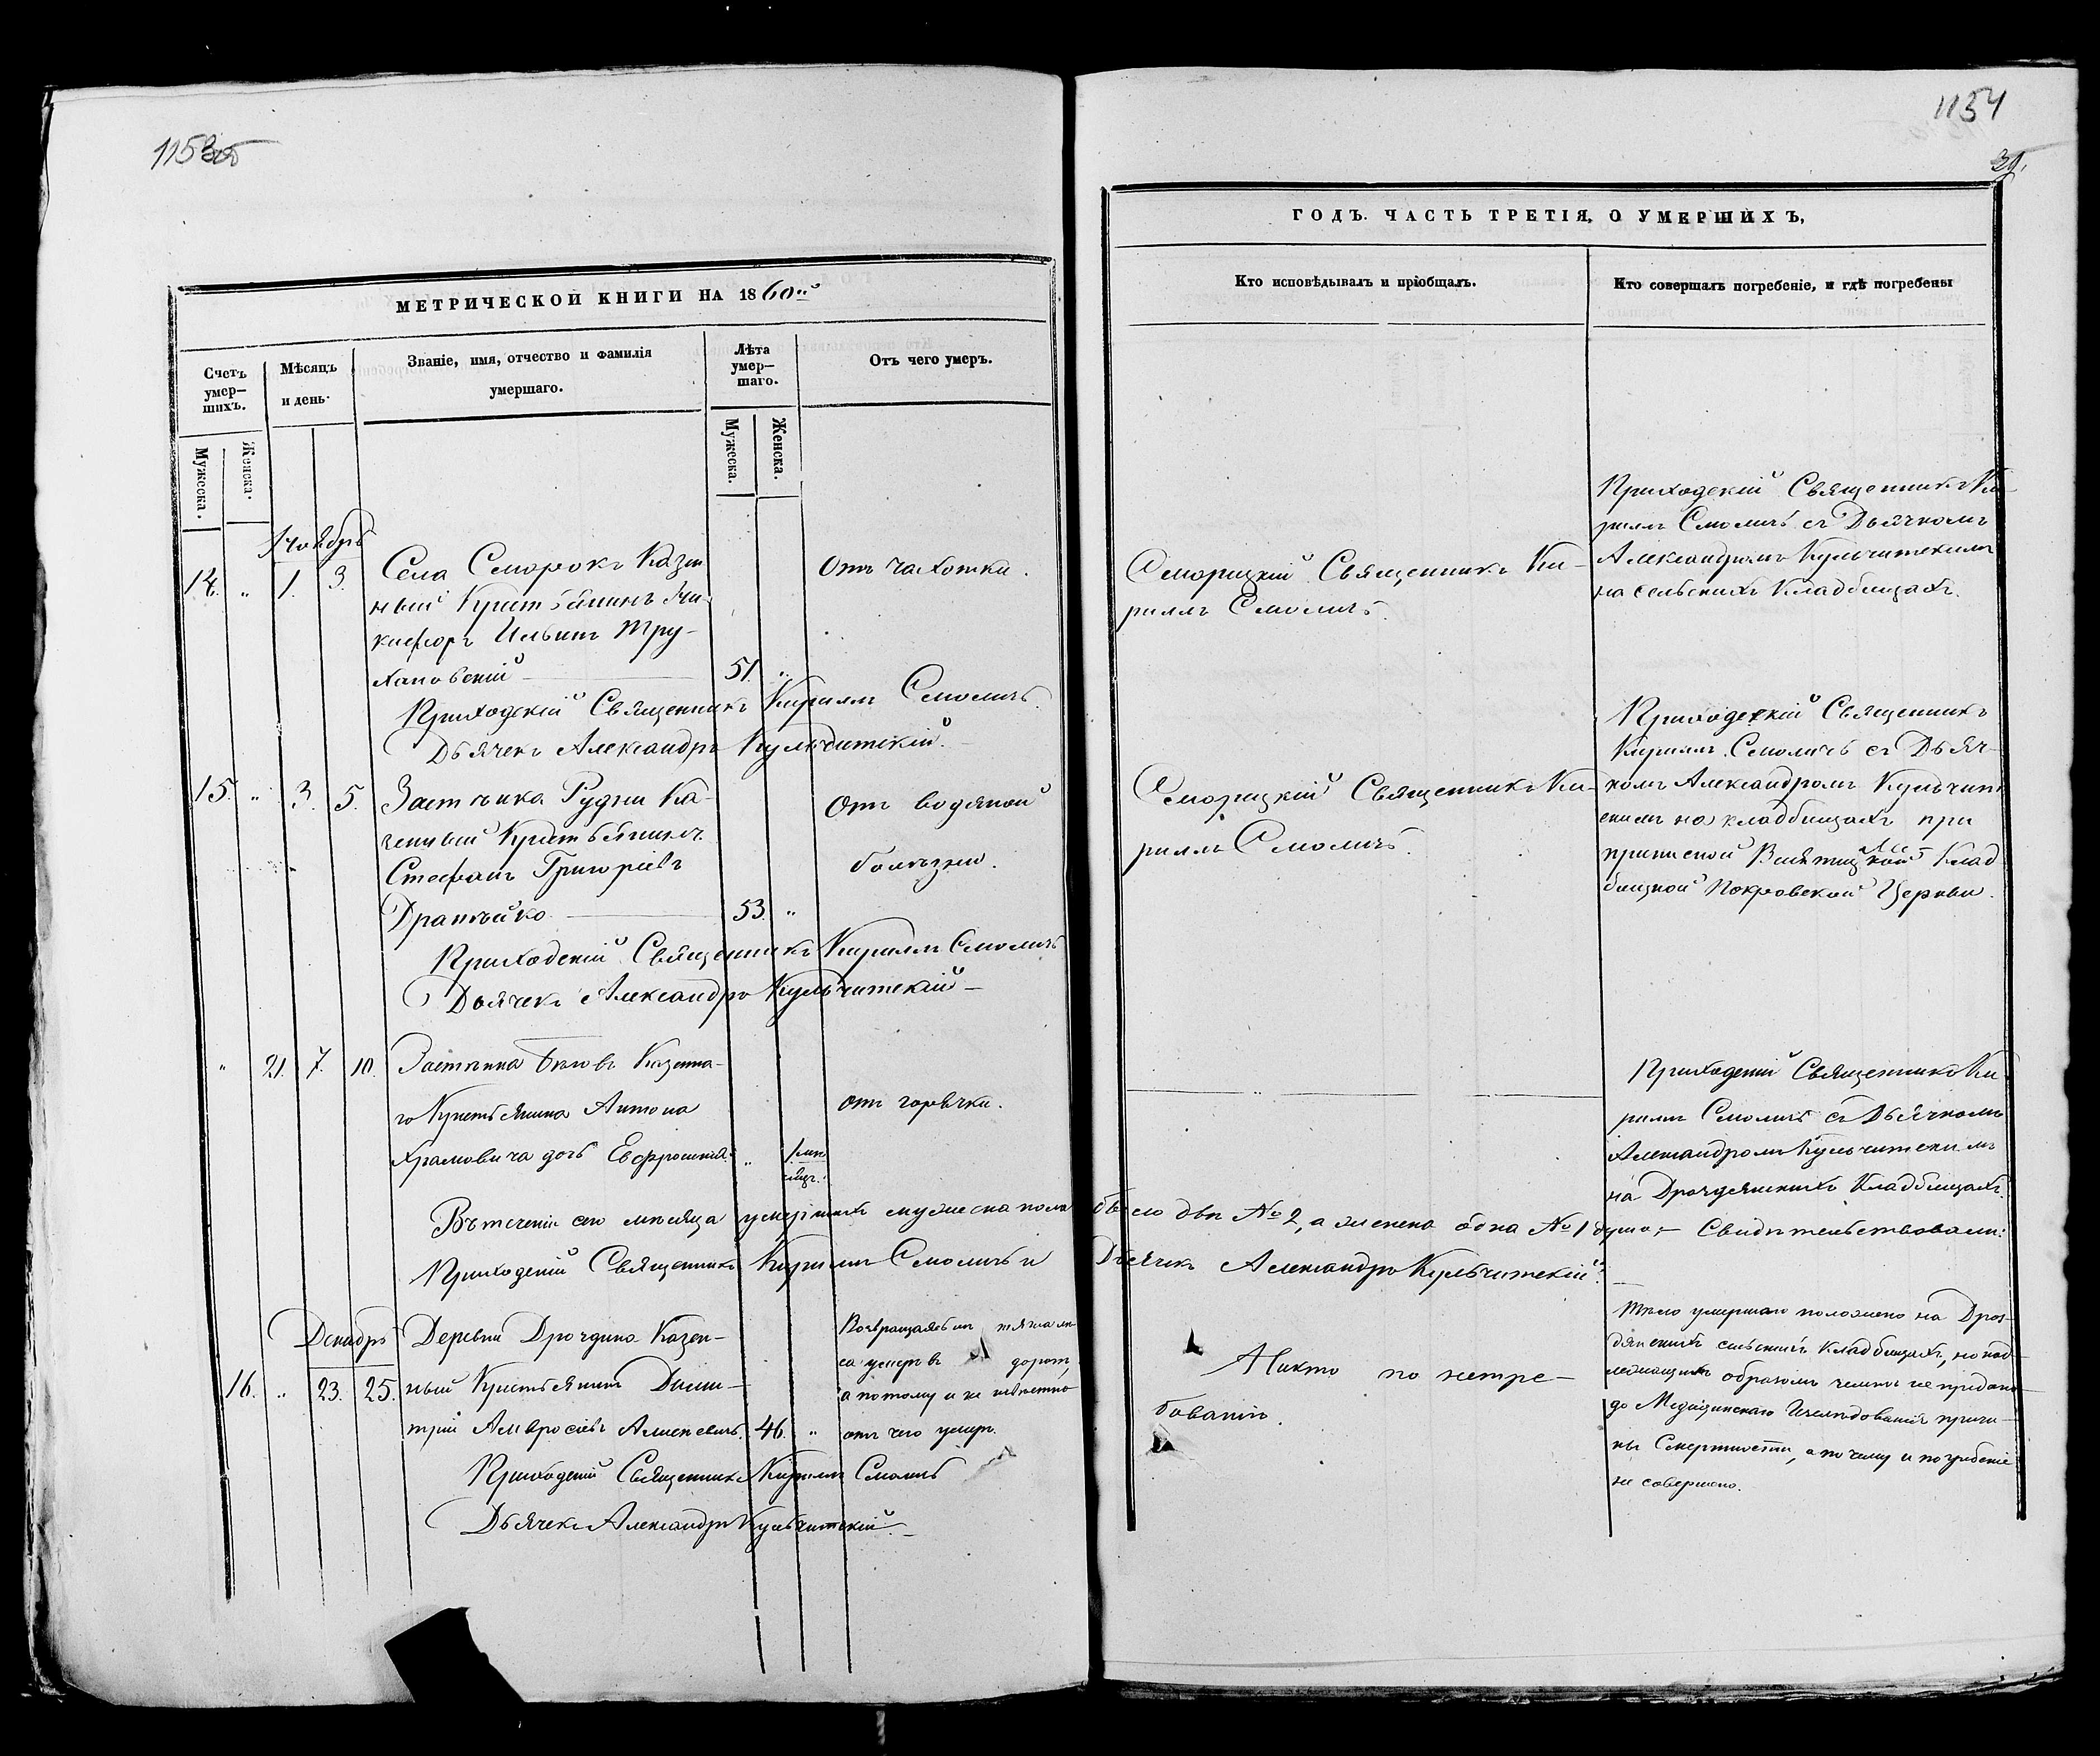 1153об
МЕТРИЧЕСКОЙ КНИГИ НА 1860ый
Счетъ умер–шихъ.
Мѣсяцъ и день.
Званіе, имя, отчество и фамилія умершаго.
Лѣта умер–шаго.
Отъ чего умеръ.
Мужеска.
Женска.
Мужеска.
Женска.
Ноябрь
14. „ 1. 3. Села Сморокъ Казен
ный Крестьянинъ Ни-
кифоръ Ильинъ Тру-
хановскій 51. „
Отъ чахотки.
Приходскій Священникъ Кириллъ Смоличъ.
Дьячекъ Александръ Кульчитскій.
15. „ 3. 5. Застѣнка Рудни Ка-
зенный Крестьянинъ
Стефанъ Григоріевъ
Драпѣйко 53. „
Отъ водяной
болѣзни.
Приходскій Священникъ Кириллъ Смоличъ
Дьячекъ Александръ Кульчитскій
„ 21. 7. 10. Застѣнка Казенна-
го Крестьянина Антона
Храмовича дочь Евфросинія „ 1
отъ горячки.
Въ теченіи сего мѣсяца умершихъ мужеска пола было два № 2, а женска одна № 1 душа; Свидѣтельствовали:
Приходскій Священникъ Кириллъ Смоличъ и Дьячекъ Александръ Кульчитскій.
Декабрь
16. „ 23. 25. Деревни Дроздина Казен-
ный Крестьянинъ Дими-
трій Амвросіевъ 46. „
Возвращаясь изъ
са умеръ въ дорогѣ,
а потому и не извѣстно
отъ чего умеръ.
Приходскій Священникъ Кириллъ Смоличъ
Дьячекъ Александръ Кульчитскій.
1154
31.
ГОДЪ. ЧАСТЬ ТРЕТІЯ, О УМЕРШИХЪ,
Кто исповѣдывалъ и пріобщалъ.
Кто совершалъ погребеніе, и гдѣ погребены
Сморицкій Священникъ Ки-
риллъ Смоличъ.
Приходскій Священникъ Ки-
риллъ Смоличъ съ Дьячкомъ
Александромъ Кульчитскимъ
на сельскихъ Кладбищахъ.
Сморицкій Священникъ Ки-
риллъ Смоличъ.
Приходскій Священникъ
Кириллъ Смоличъ съ Дьяч-
комъ Александромъ Кульчит
скимъ на кладбищахъ при
приписной Клад
бищной Покровской Церкви.
„
Приходскій Священникъ Ки
риллъ Смоличъ съ Дьячкомъ
Александромъ Кульчитскимъ
на Дроздянскихъ Кладбищахъ.
Никто по нетре-
бованію.
Тѣло умершаго положено на Дроз-
дянскихъ сельскихъ Кладбищахъ, но над-
лежащимъ образомъ землѣ не предано
до Медицинскаго Изслѣдованія причи-
ны Смертности, а по чему и погребеніе
не совершено.